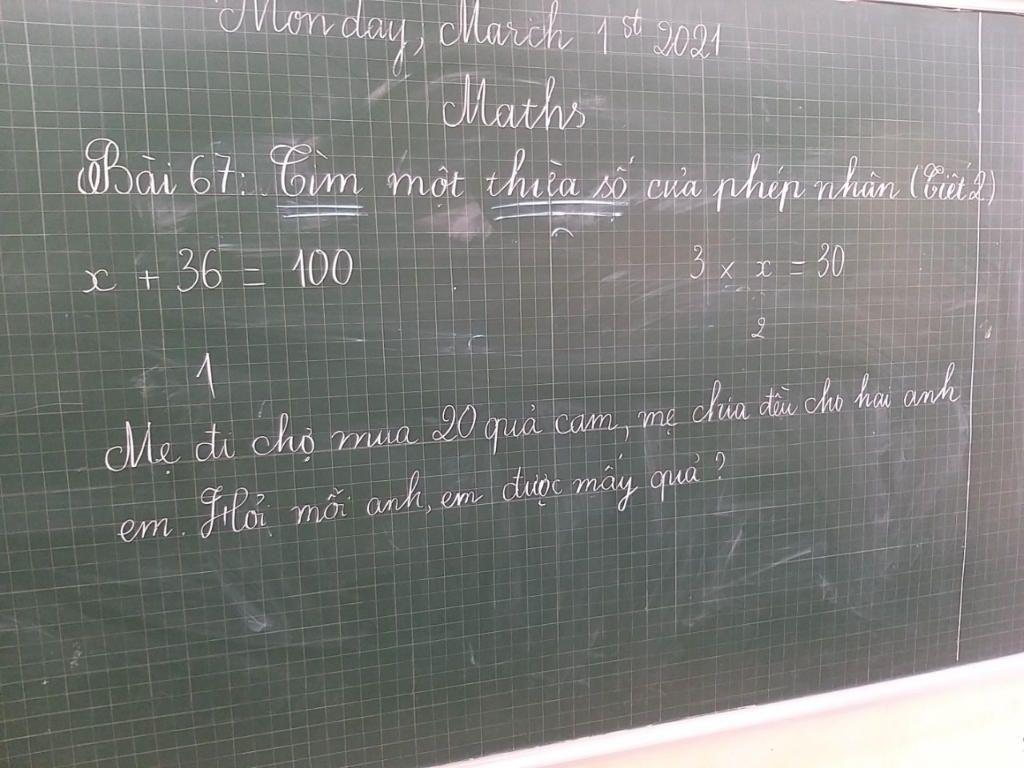 Monday, March 1st 2021
Maths
Bài 67: Tìm một thừa số của phép nhân (Tiết 2)
x + 36 = 100 3 × x = 30
1 2
Mẹ đi chợ mua 20 quả cam, mẹ chia đều cho hai anh
em. Hỏi mỗi anh, em được mấy quả?